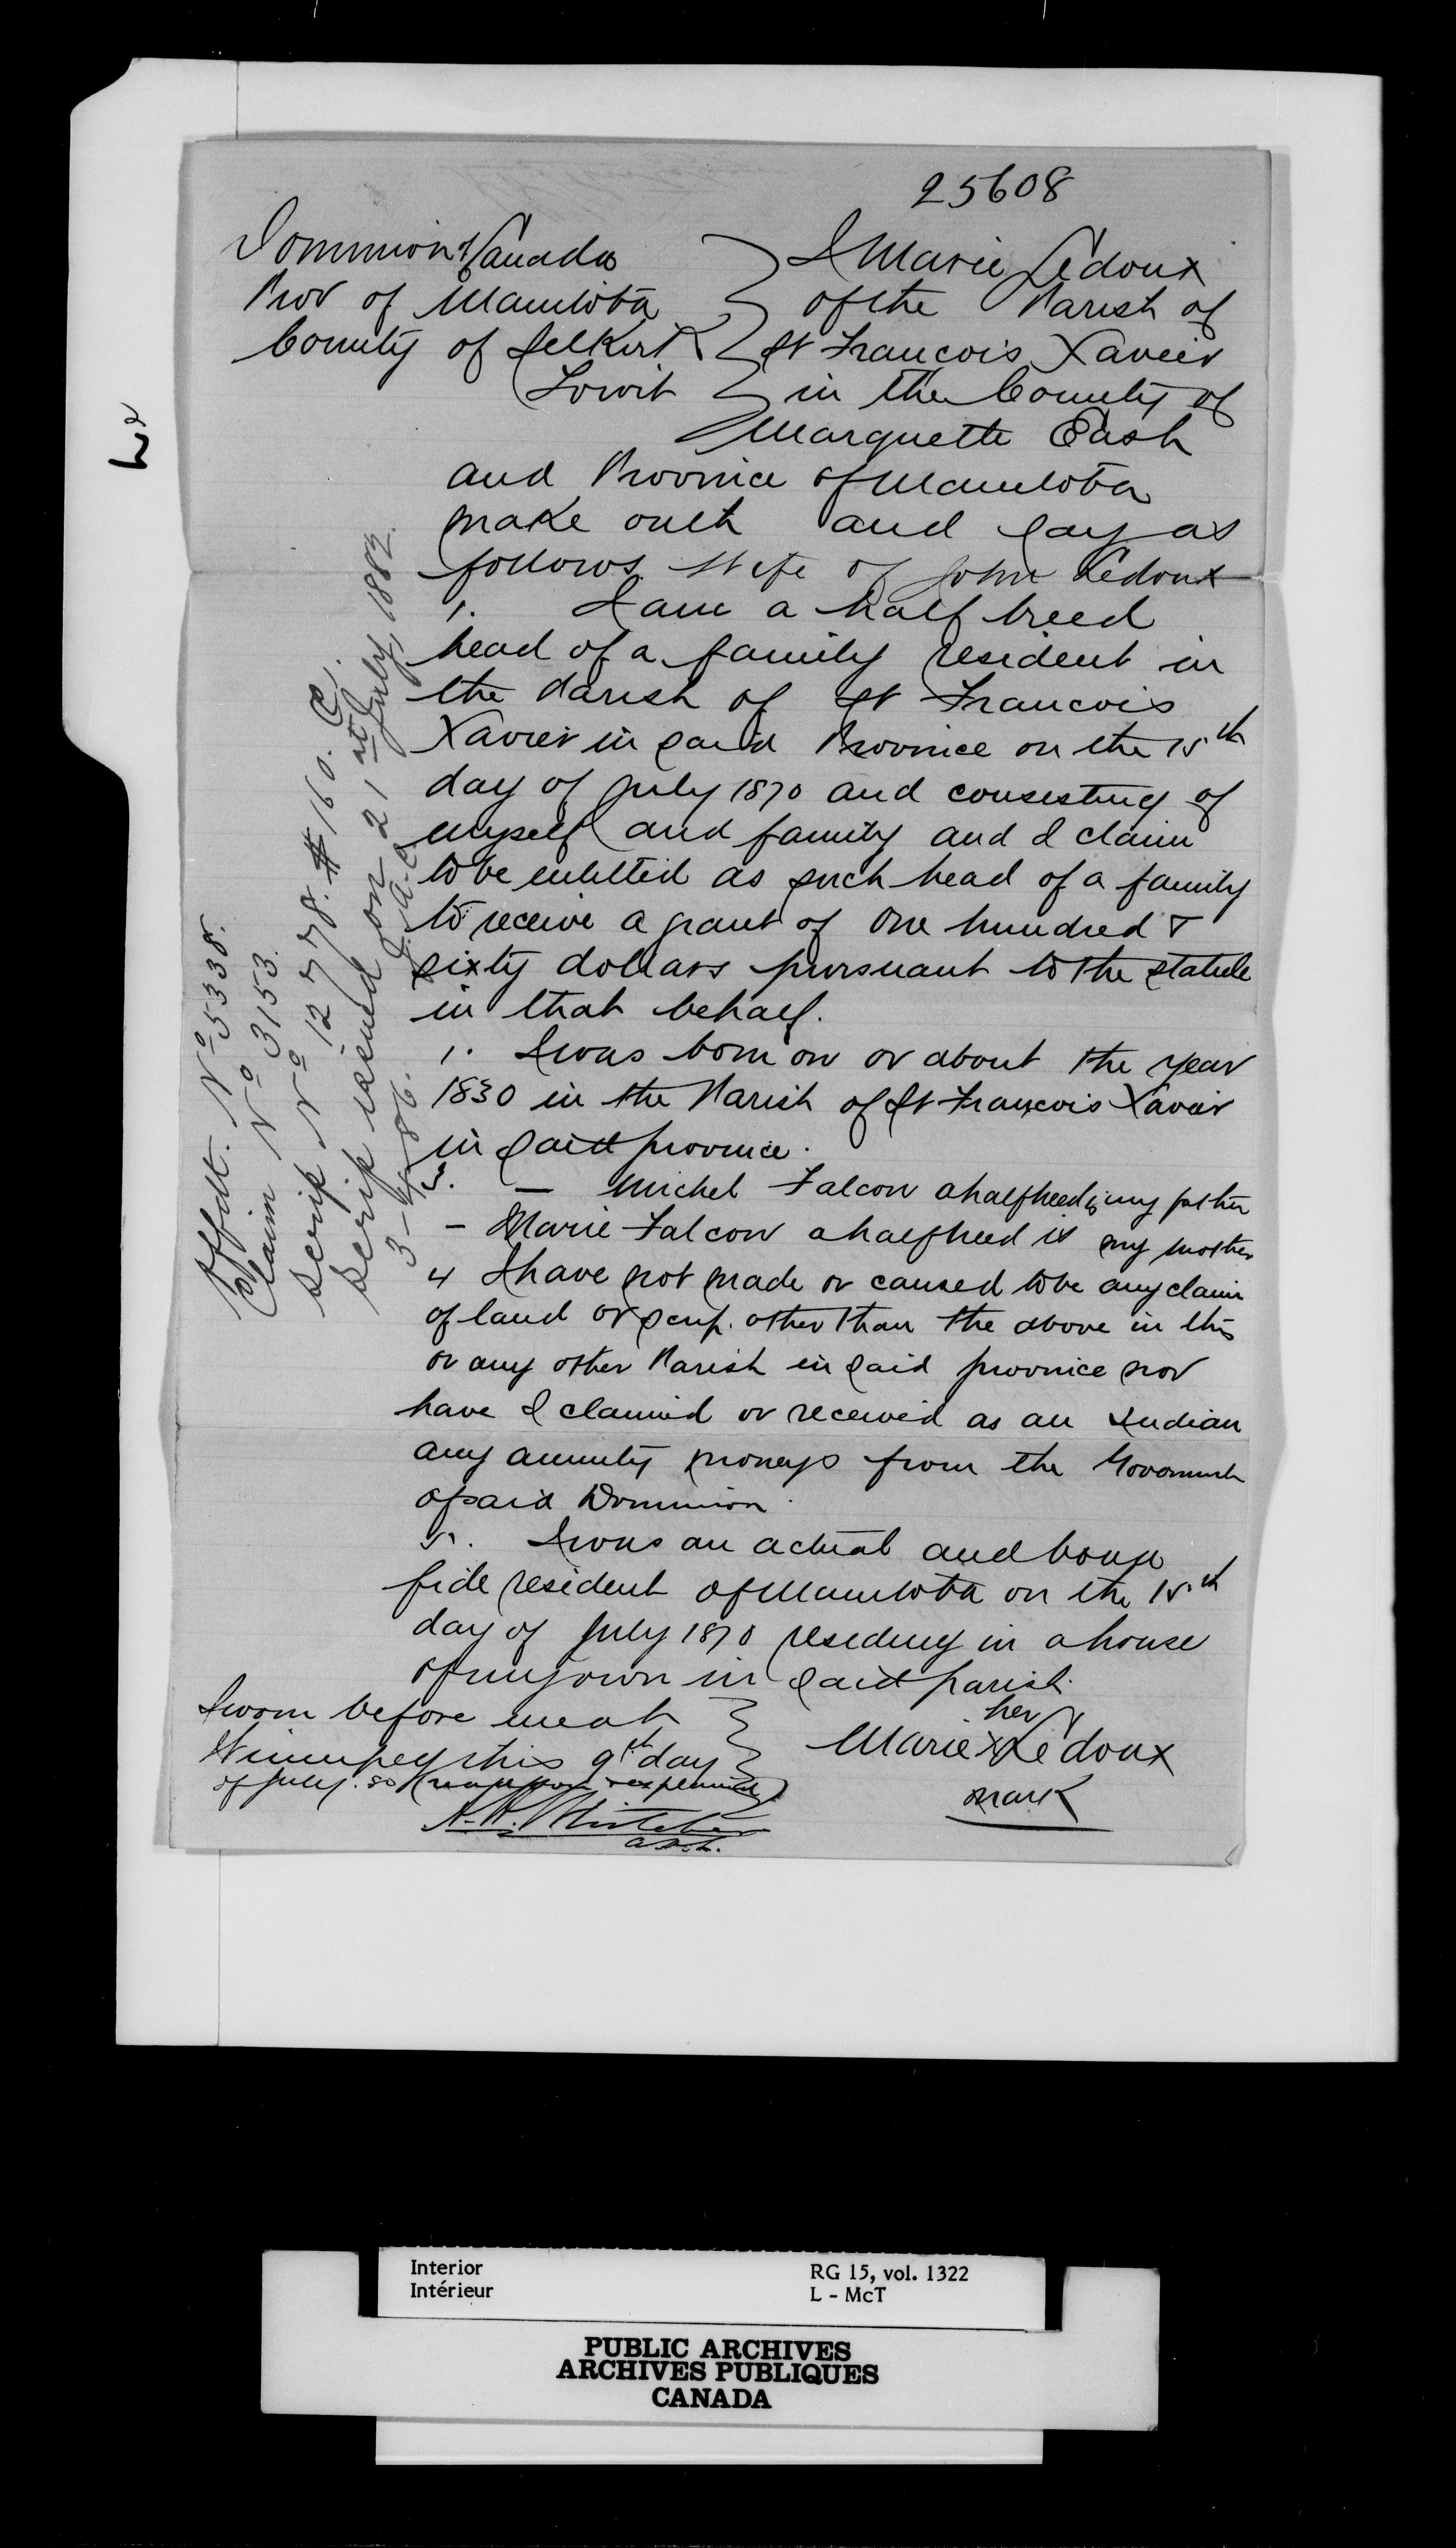 25608
Dominion of Canada
Prov of Manitoba
County of Selkirk
Towit
I Marie Ledoux
of the Parish of
St Francois Xavier
in the County of
Marquette East
and Province of Manitoba
make oath and say as
follows. Wife of John Ledoux
1. I am a half breed
head of a family resident in
the Parish of St Francois
Xavier in said Province on the 15th
day of July 1870 and consisting of
myself and family and I claim
to be entitled as such head of a family
to receive a grant of One hundred &
sixty dollars pursuant to the statute
in that behalf.
1. I was born on or about the year
1830 in the Parish of St Francois Xavier
in said province.
3. — Michel Falcon a halfbreed is my father
— Marie Falcon a halfbreed is my mother
4 I have not made or caused to be any claim
of land or scrip. other than the above in this
or any other Parish in said province nor
have I claimed or received as an Indian
any annuity moneys from the Government
of said Dominion.
5. I was an actual and bona
fide resident of Manitoba on the 15th
day of July 1870 residing in a house
of my own in said parish.
Sworn before me at
Winnipeg this 9th day
of July. 80
her
Marie X Ledoux
mark
Affdt. No 5338.
Claim No 3153.
Scrip No 12778. $160. C.
Scrip issued on 21st July 1882.
3-4-86.
Interior
Intérieur
RG 15, vol. 1322
L - McT
PUBLIC ARCHIVES
ARCHIVES PUBLIQUES
CANADA